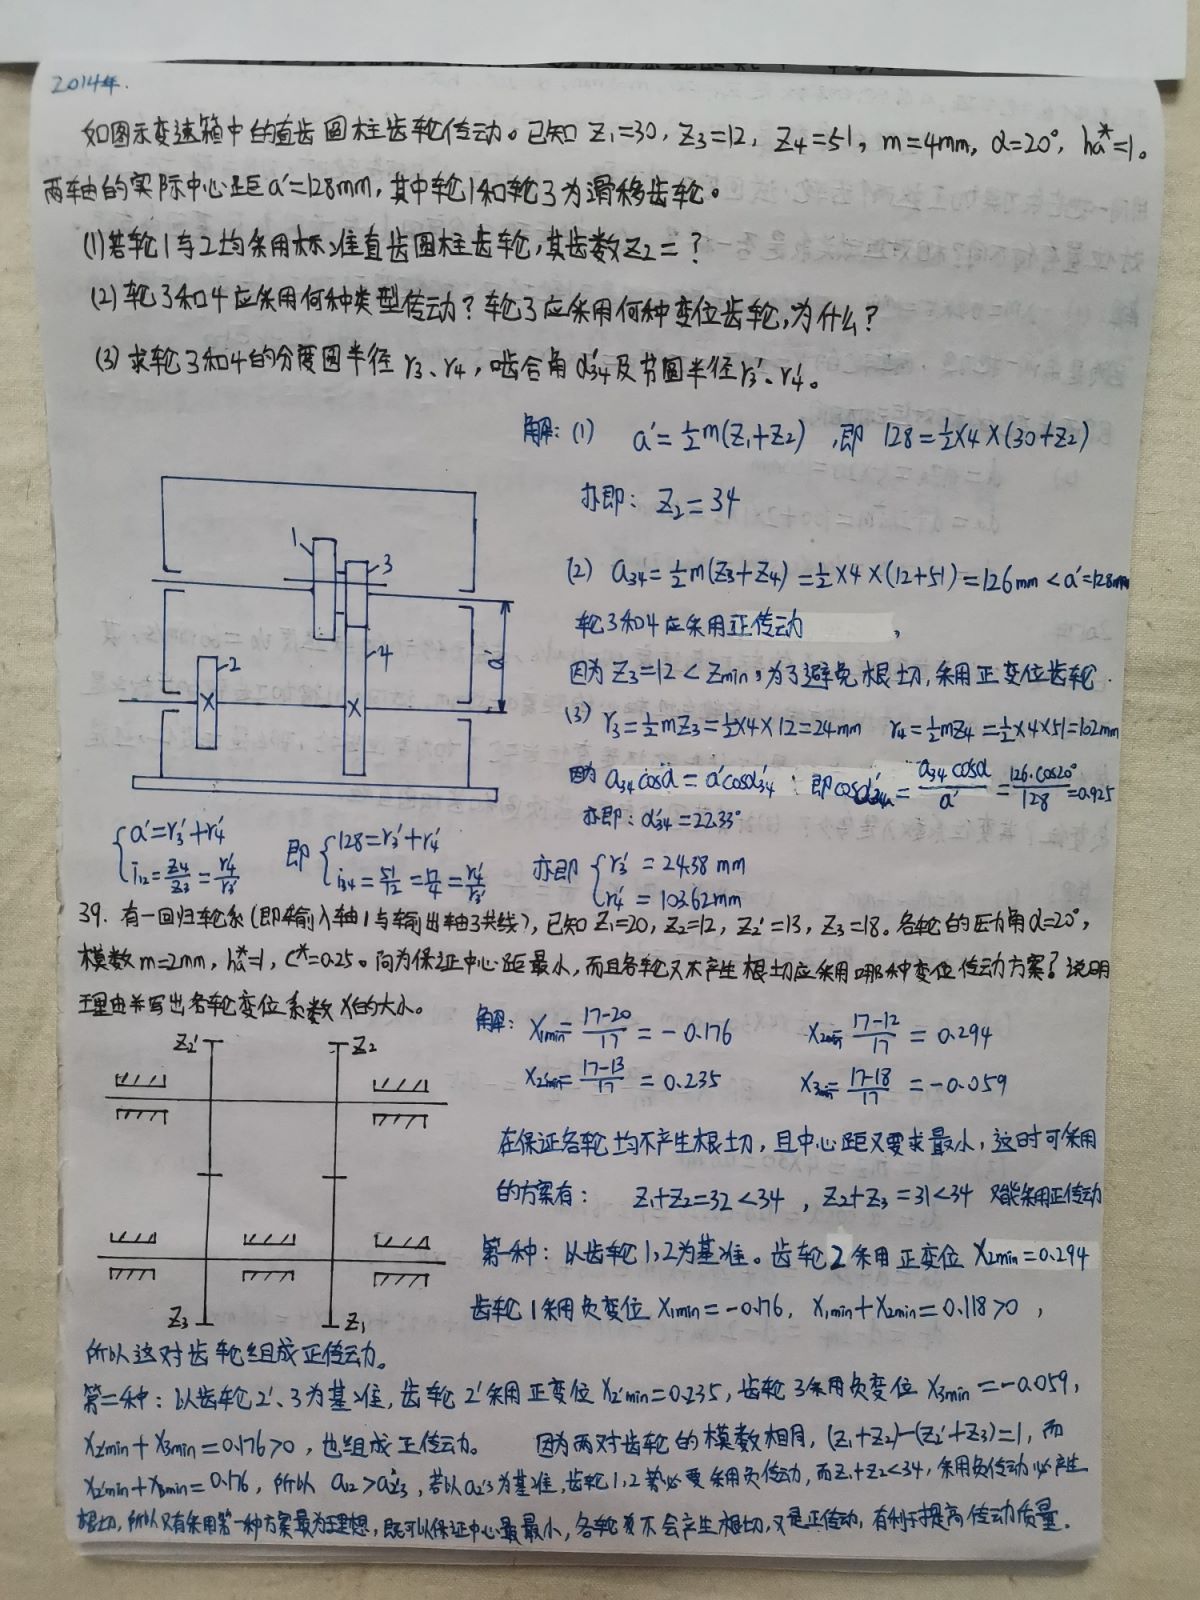 2014年.
如图示变速箱中的直齿圆柱齿轮传动。已知 Z₁=30, Z₃=12, Z₄=51, m=4mm, α=20°, ha*=1。
两轴的实际中心距a'=128mm,其中轮1和轮3为滑移齿轮。
(1)若轮1与2均采用标准直齿圆柱齿轮,其齿数Z₂=?
(2)轮3和4应采用何种类型传动?轮3应采用何种变位齿轮,为什么?
(3)求轮3和4的分度圆半径r₃、r₄,啮合角α'₃₄及节圆半径r₃'、r₄'。
解:(1) a'=½m(Z₁+Z₂) ,即 128=½×4×(30+Z₂)
亦即: Z₂=34
(2) a₃₄=½m(Z₃+Z₄)=½×4×(12+51)=126mm<a'=128mm
轮3和4应采用正传动,
因为 Z₃=12<Zmin,为了避免根切,采用正变位齿轮.
(3) r₃=½mZ₃=½×4×12=24mm r₄=½mZ₄=½×4×51=102mm
因为 a₃₄cosα=a'cosα'₃₄ 即cosα'₃₄=a₃₄cosα/a'=126·cos20°/128=0.925
亦即:α'₃₄=22.33°
1
3
2
4
a'
{a'=r₃'+r₄' 即 {128=r₃'+r₄' 亦即 {r₃'=24.38mm
i₁₂=Z₄/Z₃=r₄'/r₃' i₃₄=51/12=17/4=r₄'/r₃' r₄'=103.62mm
39. 有一回归轮系(即输入轴1与输出轴3共线),已知Z₁=20,Z₂=12,Z₂'=13,Z₃=18。各轮的压力角α=20°,
模数m=2mm,ha*=1,C*=0.25。问为保证中心距最小,而且各轮又不产生根切应采用哪种变位传动方案?说明
理由并写出各轮变位系数X的大小。
解: X₁min=17-20/17=-0.176 X₂min=17-12/17=0.294
X₂'min=17-13/17=0.235 X₃min=17-18/17=-0.059
Z₂'
Z₂
Z₃
Z₁
在保证各轮均不产生根切,且中心距又要求最小,这时可采用
的方案有: Z₁+Z₂=32<34 , Z₂+Z₃=31<34 只能采用正传动
第一种:以齿轮1,2为基准。齿轮2采用正变位X₂min=0.294
齿轮1采用负变位X₁min=-0.176, X₁min+X₂min=0.118>0 ,
所以这对齿轮组成正传动。
第二种:以齿轮2'、3为基准,齿轮2'采用正变位X₂'min=0.235,齿轮3采用负变位X₃min=-0.059,
X₂'min+X₃min=0.176>0,也组成正传动。 因为两对齿轮的模数相同,(Z₁+Z₂)-(Z₂'+Z₃)=1,而
X₂'min+X₃min=0.176,所以a₁₂>a₂'₃,若以a₂'₃为基准,齿轮1,2势必要采用负传动,而Z₁+Z₂<34,采用负传动必产生
根切,所以只有采用第一种方案最为理想,既可以保证中心最最小,各轮又不会产生根切,又是正传动,有利于提高传动质量.